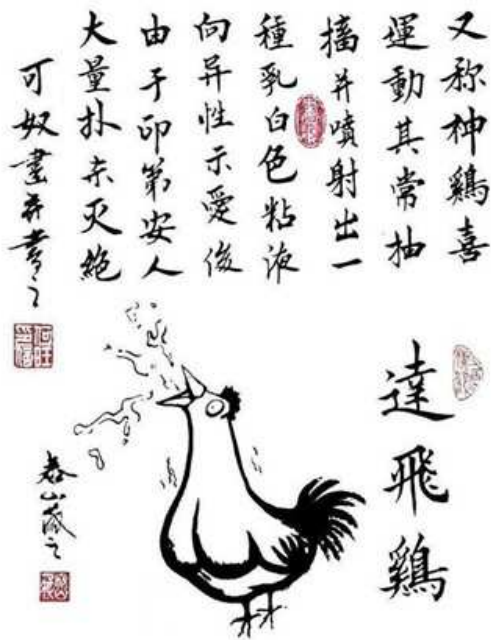 達飛鷄
又称神鷄喜
運動其常抽
搐并噴射出一
種乳白色粘液
向异性示愛後
由于印第安人
大量扑杀灭絕
可奴畫并書之
春山藏之